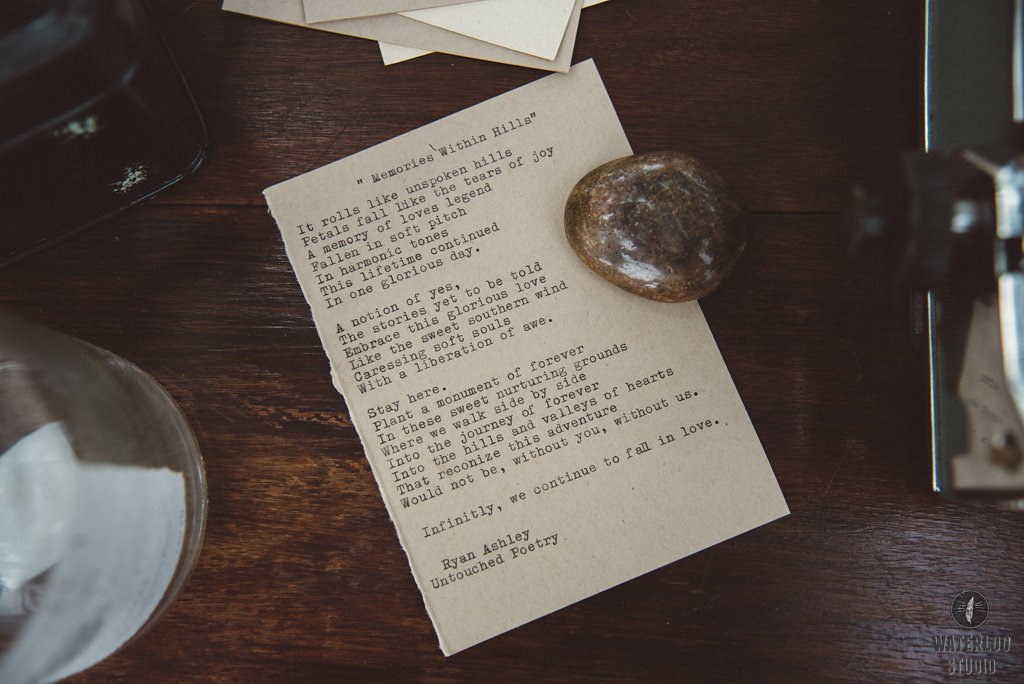 " Memories Within Hills"
It rolls like unspoken hills
Petals fall like the tears of joy
A memory of loves legend
Fallen in soft pitch
In harmonic tones
This lifetime continued
In one glorious day.
A notion of yes,
The stories yet to be told
Embrace this glorious love
Like the sweet southern wind
Caressing soft souls
With a liberation of awe.
Stay here.
Plant a monument of forever
In these sweet nurturing grounds
Where we walk side by side
Into the journey of forever
Into the hills and valleys of hearts
That reconize this adventure
Would not be, without you, without us.
Infinitly, we continue to fall in love.
Ryan Ashley
Untouched Poetry
WATERLOO
STUDIO